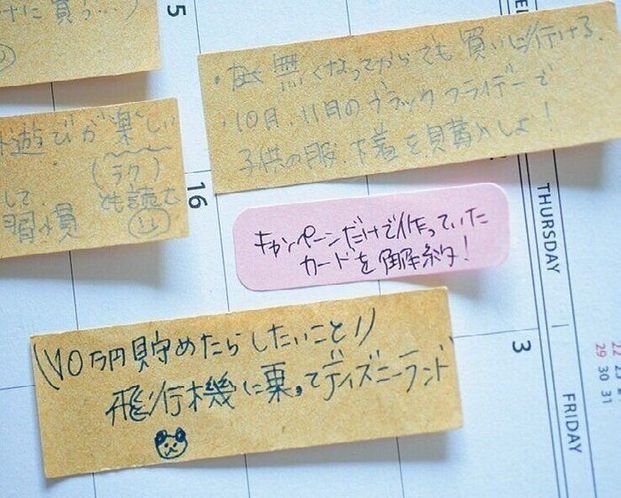 けに買う…)
5
・無くなってからでも買いに行ける。
・10月、11月のブラックフライデーで
子供の服、下着を購入しよ!
遊びが楽しい
(ラク)
して も読む
習慣
16
THURSDAY
キャンペーンだけで作っていた
カードを解約!
\10万円貯めたらしたいこと//
飛行機に乗ってディズニーランド
3
22 23
29 30 31
FRIDAY